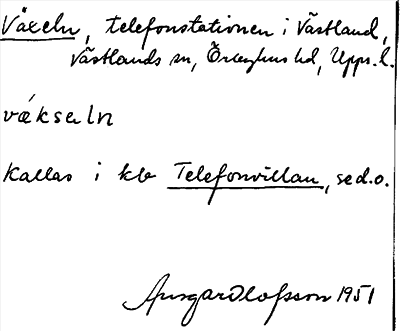 Växeln, telefonstationen i Västland,
Västlands sn, Örbyhus hd, Upps. l.
vǽksəln
kallas i kb Telefonvillan, se d.o.
Ansgar Olofsson 1951